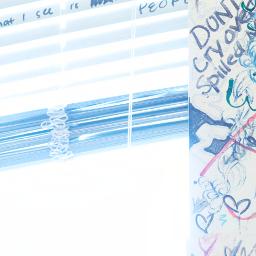 hat I see is
PEOPL
DON'T
Cry over
Spilled